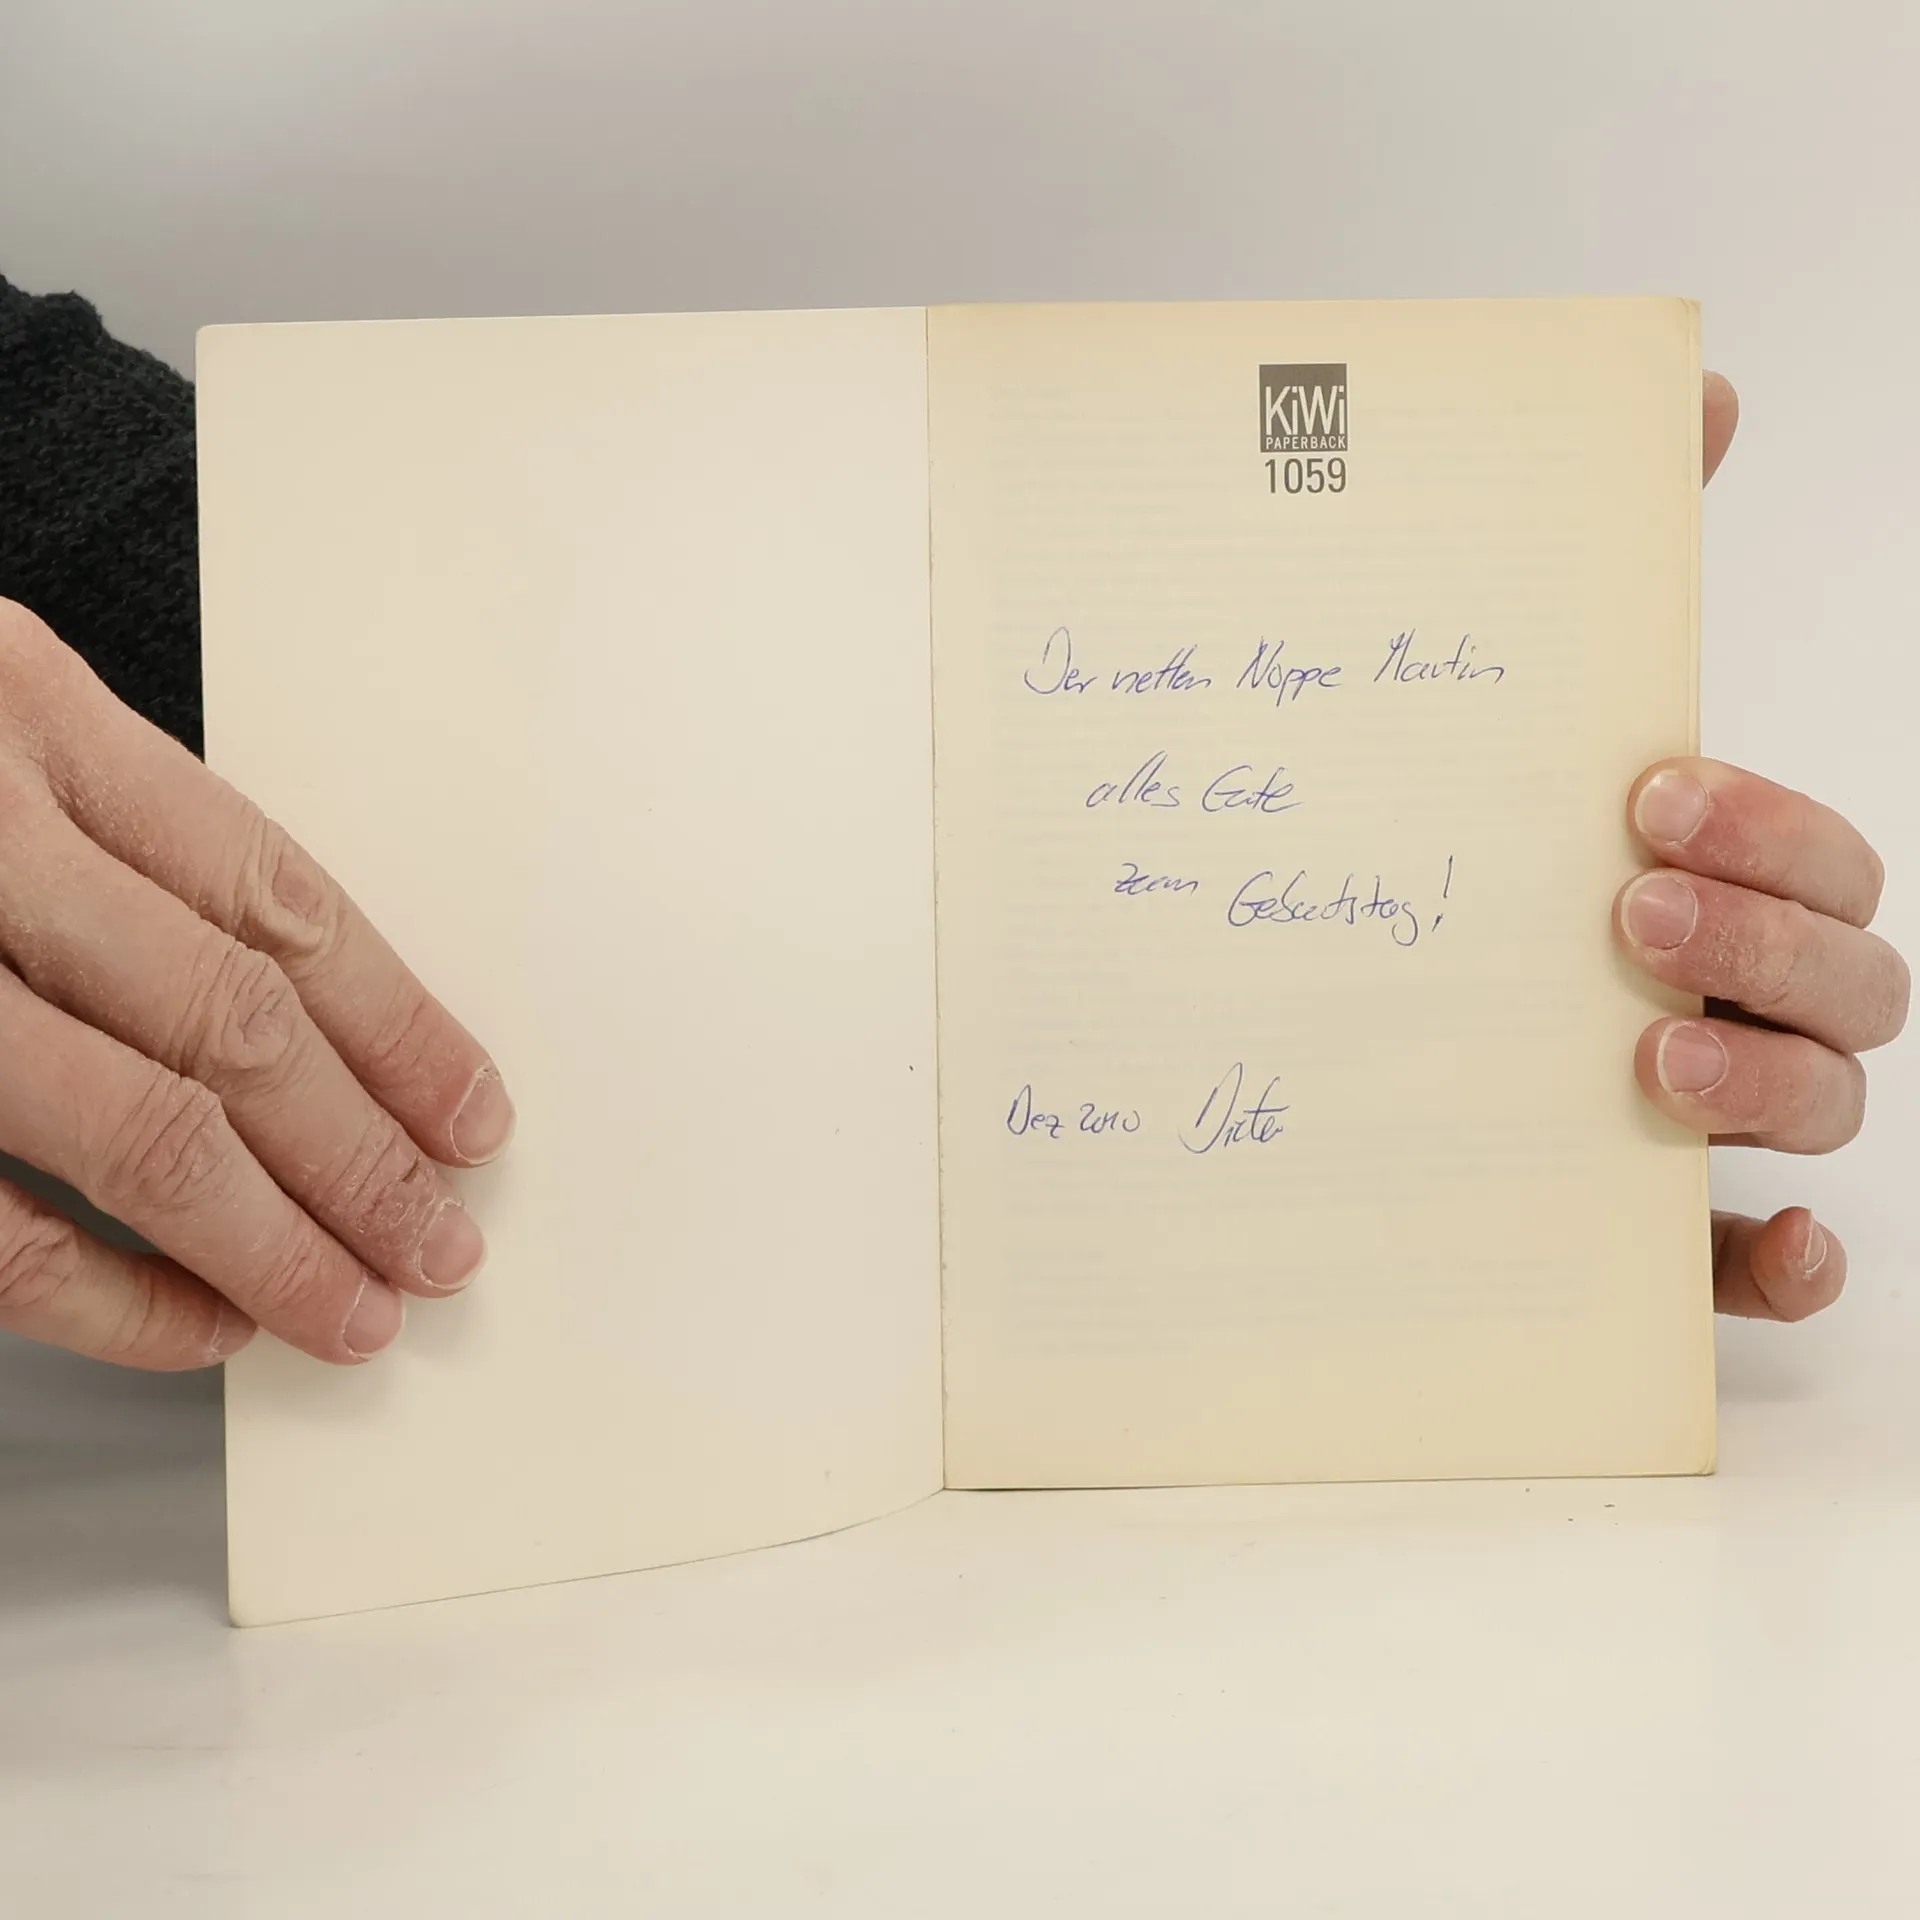 KiWi
PAPERBACK
1059
Der netten Noppe Martin
alles Gute
zum Geburtstag!
Dez 2010 Dieter